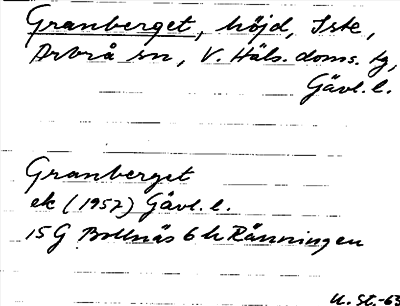 Granberget, höjd, Iste,
Arbrå sn, V. Häls. doms. tg,
Gävl. l.
Granberget
ek (1957) Gävl. l.
15G Bollnäs 6h Ränningen
U. St.-63